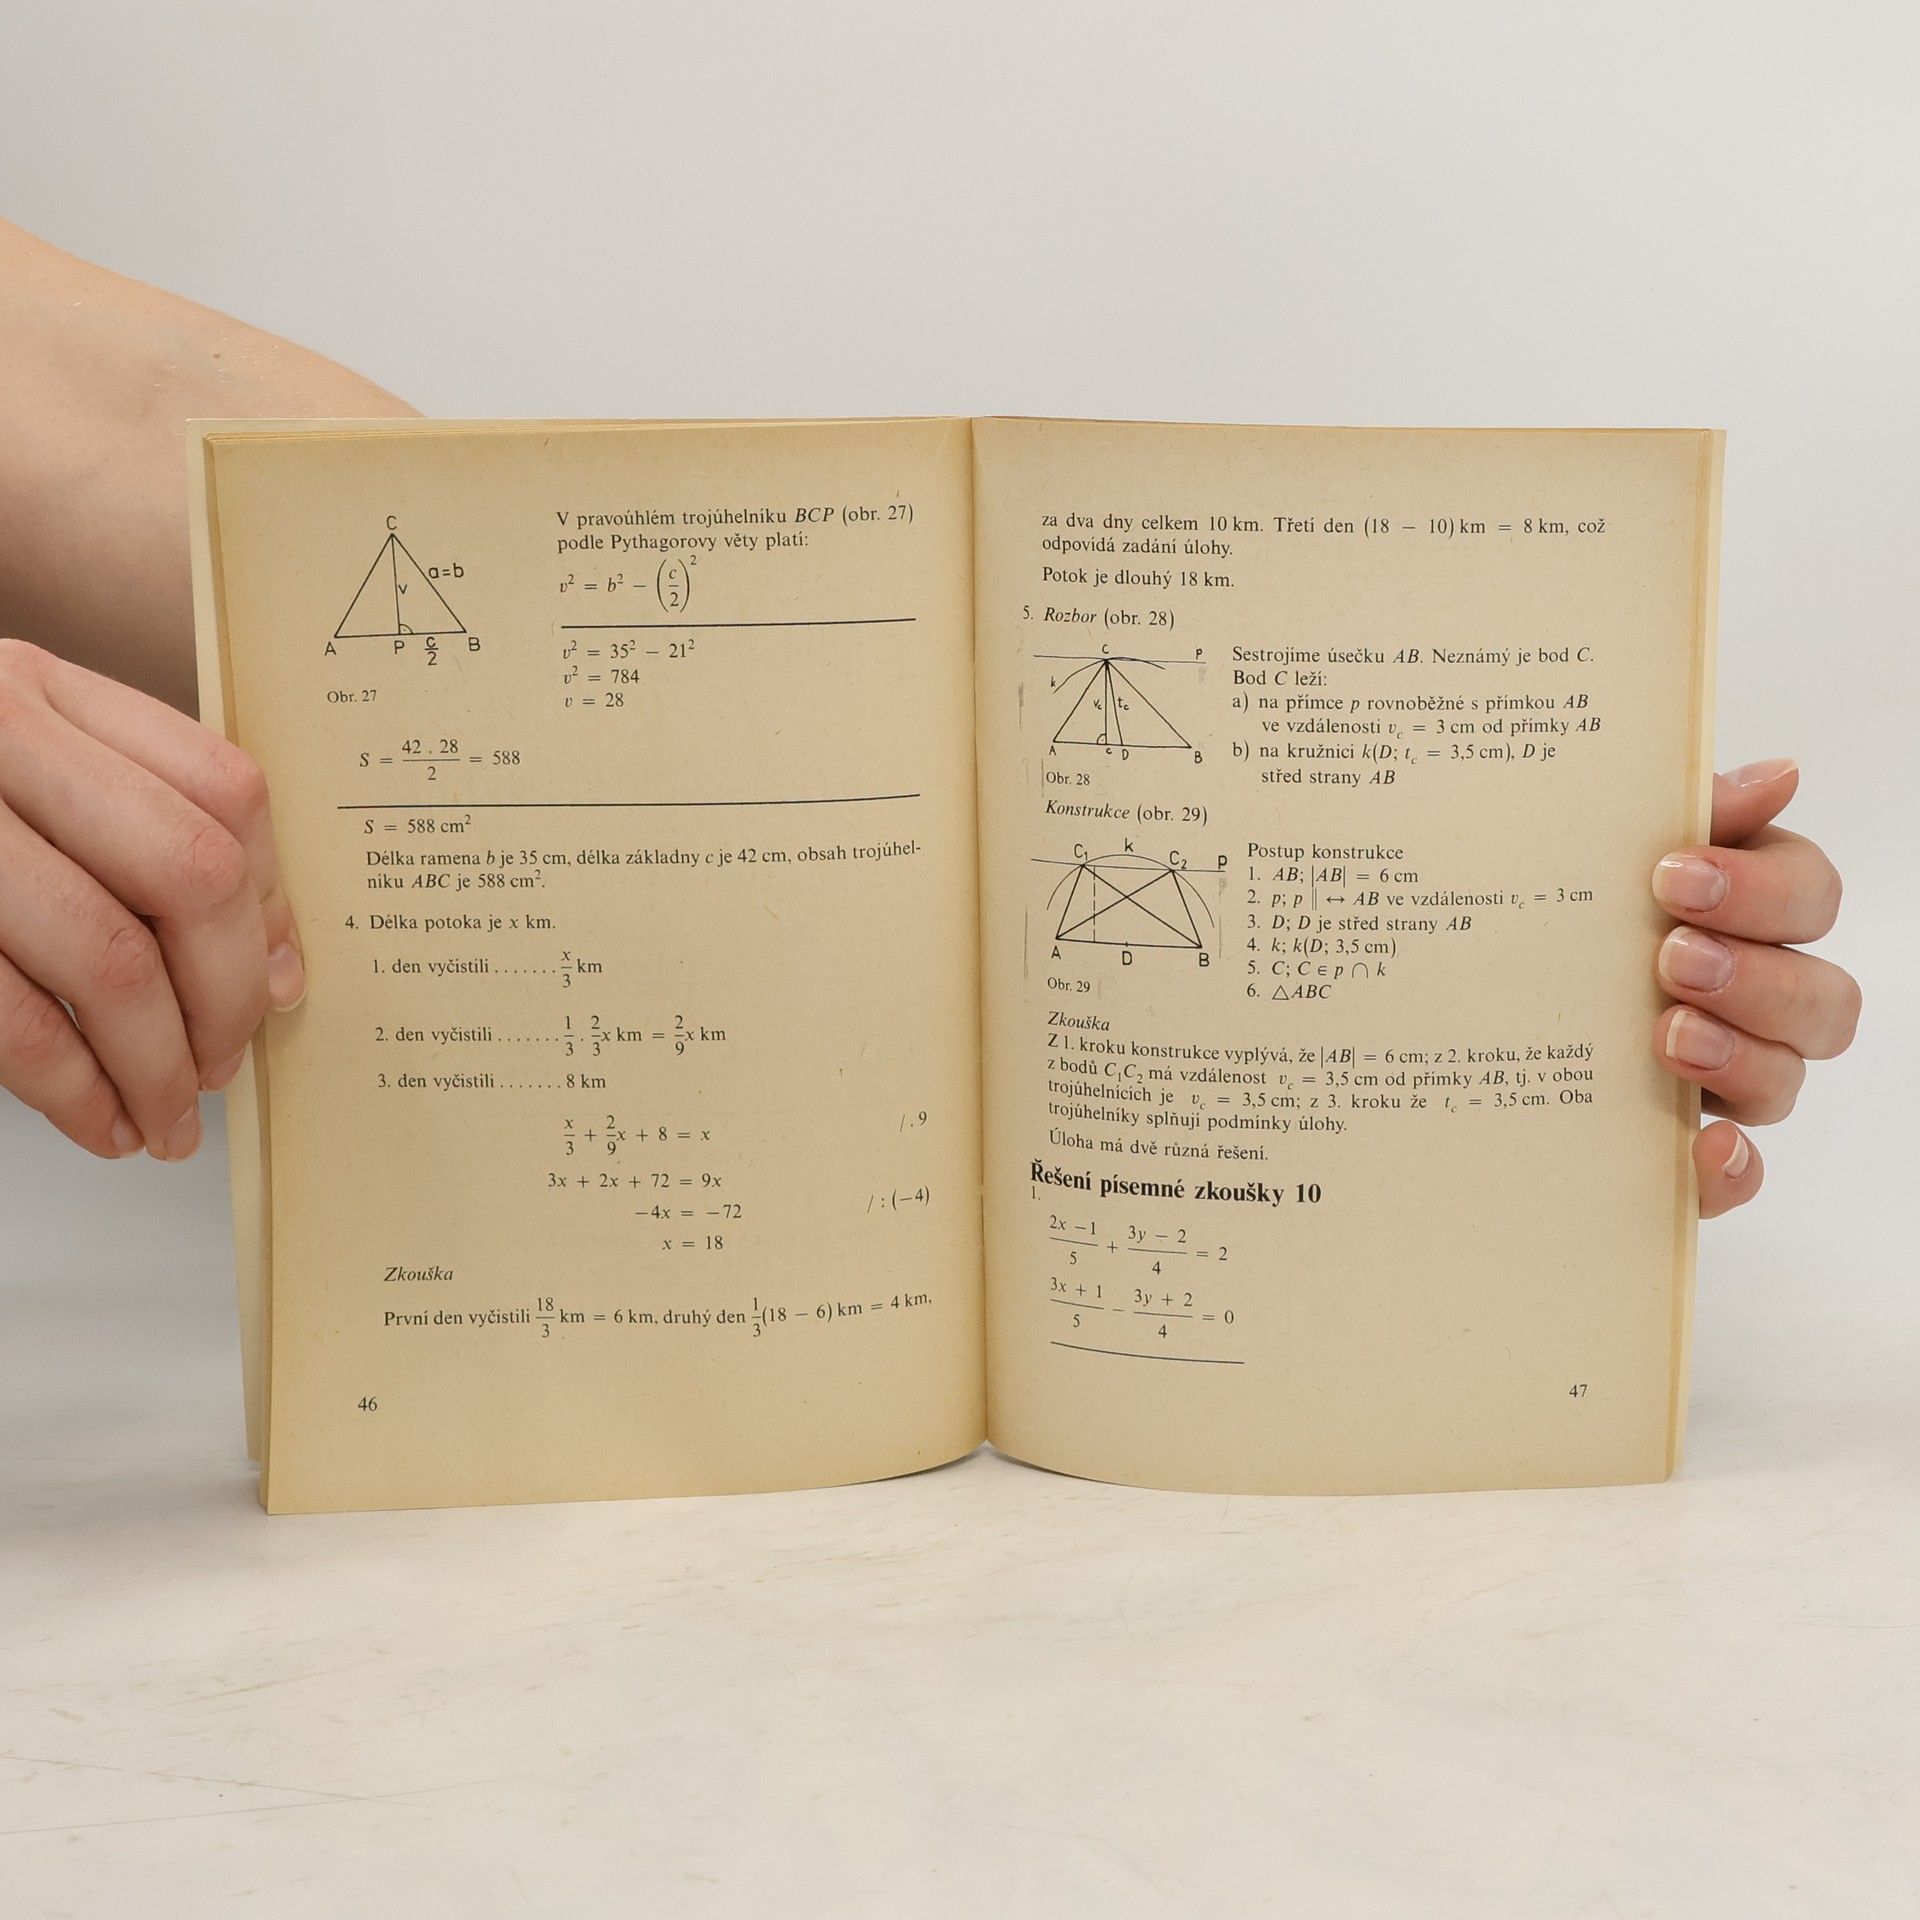 C
a=b
v
A
P
c/2
B
Obr. 27
V pravoúhlém trojúhelníku BCP (obr. 27)
podle Pythagorovy věty platí:
v² = b² − (c/2)²
v² = 35² − 21²
v² = 784
v = 28
S = 42 . 28 / 2 = 588
S = 588 cm²
Délka ramena b je 35 cm, délka základny c je 42 cm, obsah trojúhel-
níku ABC je 588 cm².
4. Délka potoka je x km.
1. den vyčistili ....... x/3 km
2. den vyčistili ....... 1/3 . 2/3 x km = 2/9 x km
3. den vyčistili ....... 8 km
x/3 + 2/9 x + 8 = x /. 9
3x + 2x + 72 = 9x
−4x = −72 / : (−4)
x = 18
Zkouška
První den vyčistili 18/3 km = 6 km, druhý den 1/3 (18 − 6) km = 4 km,
46
za dva dny celkem 10 km. Třetí den (18 − 10) km = 8 km, což
odpovídá zadání úlohy.
Potok je dlouhý 18 km.
5. Rozbor (obr. 28)
C
p
k
v_c
t_c
A
c
D
B
Obr. 28
Sestrojíme úsečku AB. Neznámý je bod C.
Bod C leží:
a) na přímce p rovnoběžné s přímkou AB
ve vzdálenosti v_c = 3 cm od přímky AB
b) na kružnici k(D; t_c = 3,5 cm), D je
střed strany AB
Konstrukce (obr. 29)
C₁
k
C₂
p
A
D
B
Obr. 29
Postup konstrukce
1. AB; |AB| = 6 cm
2. p; p ∥ ↔ AB ve vzdálenosti v_c = 3 cm
3. D; D je střed strany AB
4. k; k(D; 3,5 cm)
5. C; C ∈ p ∩ k
6. △ABC
Zkouška
Z 1. kroku konstrukce vyplývá, že |AB| = 6 cm; z 2. kroku, že každý
z bodů C₁C₂ má vzdálenost v_c = 3,5 cm od přímky AB, tj. v obou
trojúhelnících je v_c = 3,5 cm; z 3. kroku že t_c = 3,5 cm. Oba
trojúhelníky splňují podmínky úlohy.
Úloha má dvě různá řešení.
Řešení písemné zkoušky 10
1.
2x − 1 / 5 + 3y − 2 / 4 = 2
3x + 1 / 5 − 3y + 2 / 4 = 0
47